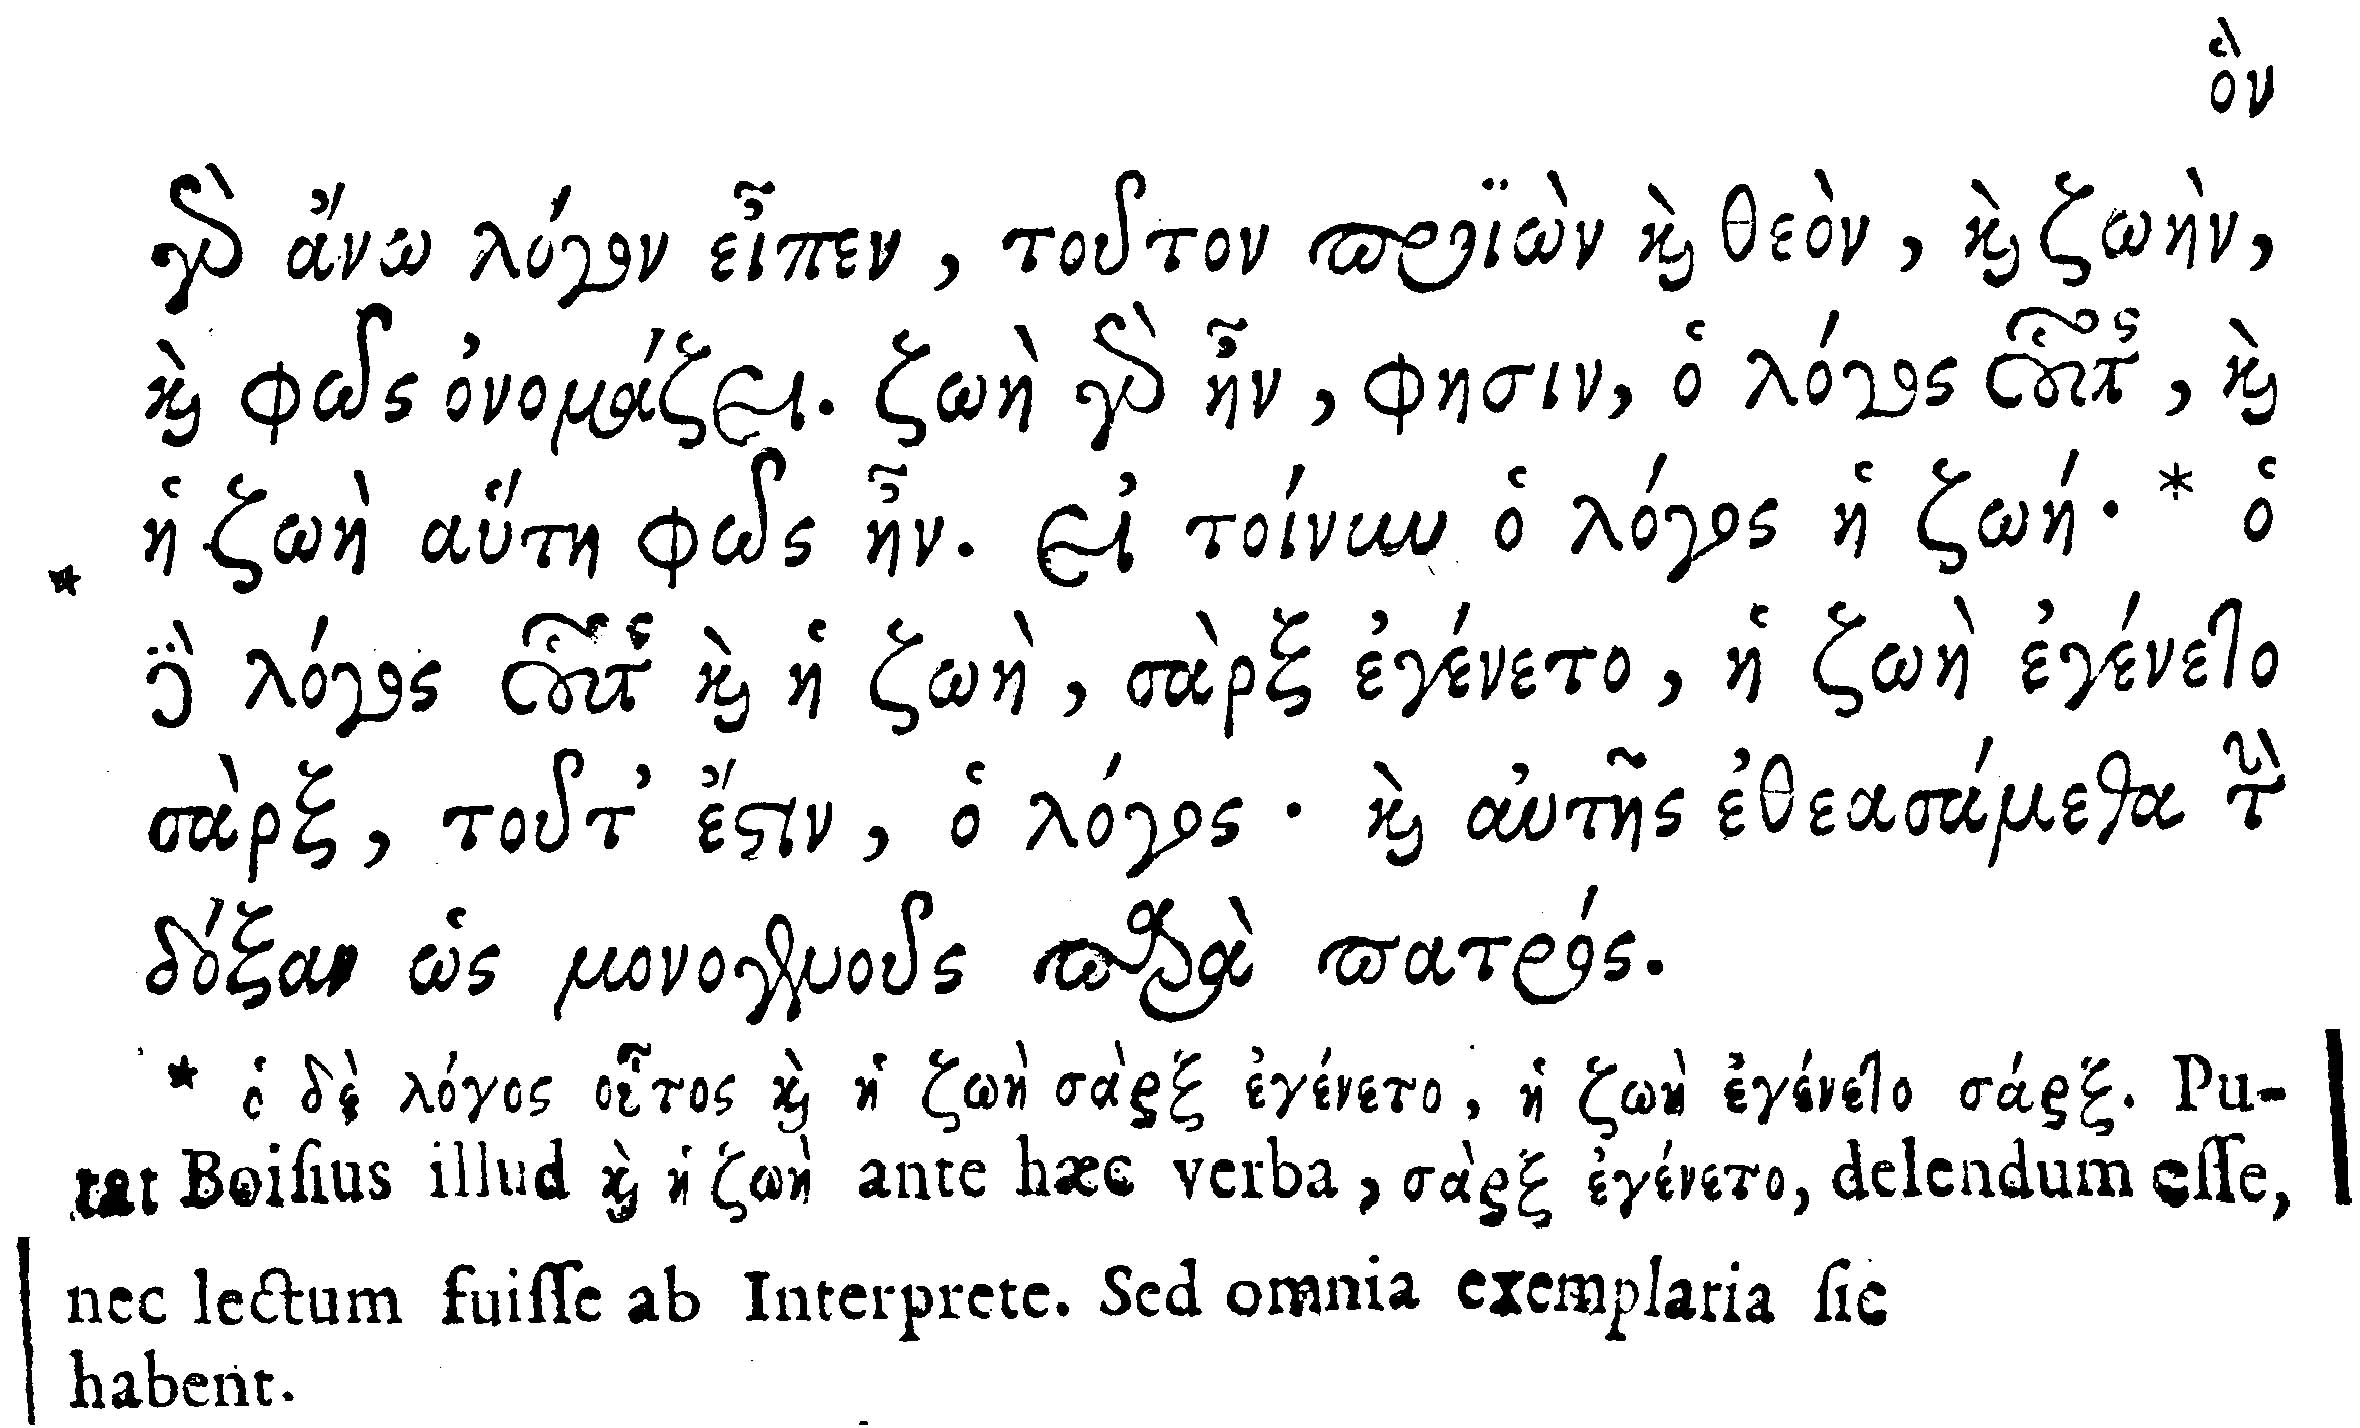 ὃν
γὰρ ἄνω λόγον εἶπεν, τοῦτον προϊὼν καὶ θεὸν, καὶ ζωὴν,
καὶ φῶς ὀνομάζει. ζωὴ γὰρ ἦν, φησιν, ὁ λόγος οὗτος, καὶ
ἡ ζωὴ αὕτη φῶς ἦν. εἰ τοίνυν ὁ λόγος ἡ ζωή· * ὁ
* δὲ λόγος οὗτος καὶ ἡ ζωὴ, σὰρξ ἐγένετο, ἡ ζωὴ ἐγένετο
σὰρξ, τοῦτ’ ἔστιν, ὁ λόγος· καὶ αὐτῆς ἐθεασάμεθα τὴν
δόξαν ὡς μονογενοῦς παρὰ πατρός.
* ὁ δὲ λόγος οὗτος καὶ ἡ ζωὴ σὰρξ ἐγένετο, ἡ ζωὴ ἐγένετο σάρξ. Pu-
tat Boiſius illud καὶ ἡ ζωὴ ante hæc verba, σὰρξ ἐγένετο, delendum eſſe,
nec lectum fuiſſe ab Interprete. Sed omnia exemplaria ſic
habent.